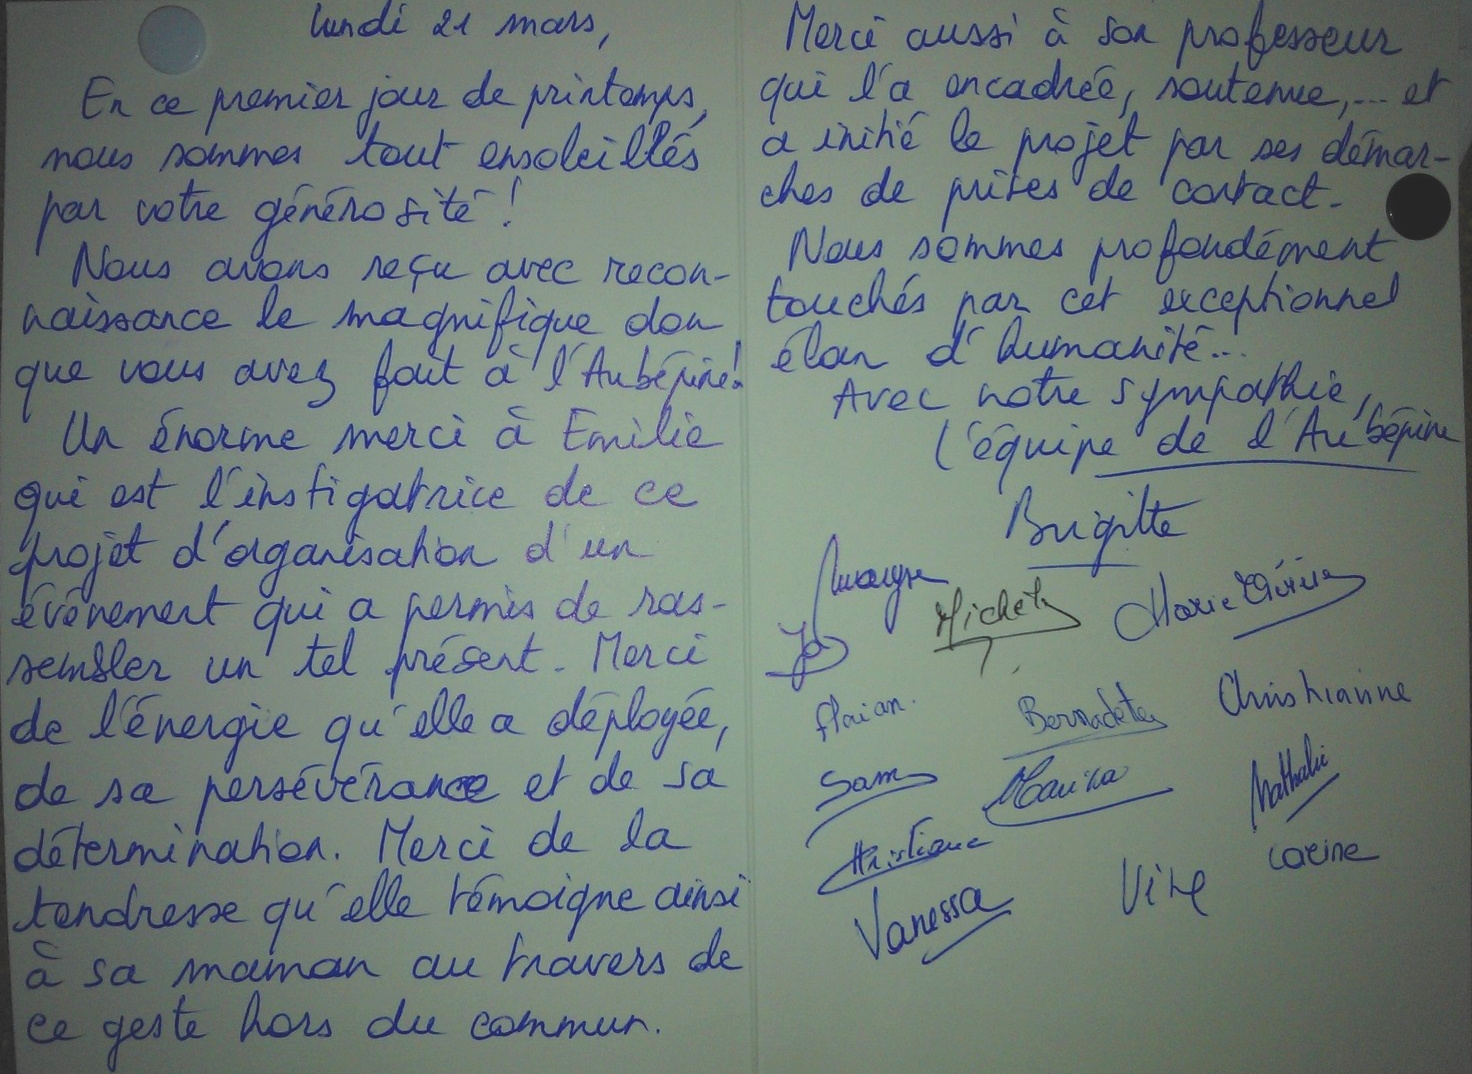 lundi 21 mars,
En ce premier jour de printemps,
nous sommes tout ensoleillés
par votre générosité !
Nous avons reçu avec recon-
naissance le magnifique don
que vous avez fait à l'Aubépine!
Un énorme merci à Emilie
qui est l'instigatrice de ce
projet d'organisation d'un
événement qui a permis de ras-
sembler un tel présent. Merci
de l'énergie qu'elle a déployée,
de sa persévérance et de sa
détermination. Merci de la
tendresse qu'elle témoigne ainsi
à sa maman au travers de
ce geste hors du commun.
Merci aussi à son professeur
qui l'a encadrée, soutenue,... et
a initié le projet par ses démar-
ches de prises de contact.
Nous sommes profondément
touchés par cet exceptionnel
élan d'humanité...
Avec notre sympathie,
l'équipe de l'Aubépine
Brigitte
Michel
Marie
Florian.
Bernadette
Christianne
Sam
Marina
Nathalie
Christiane
Carine
Vanessa